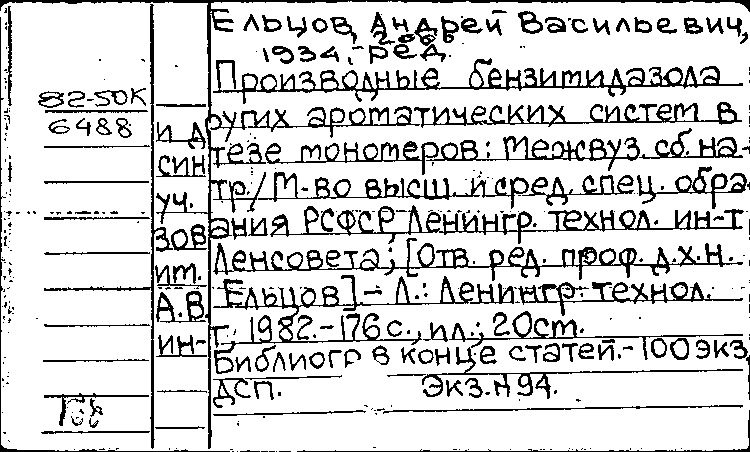 Ельцов, Андрей Васильевич,
1934,- ред.
82-50К
6488
Производные бензимидазола
и других ароматических систем в
синтезе мономеров: Межвуз. сб. на-
уч. тр./М-во высш. и сред. спец. обра-
зования РСФСР, Ленингр. технол. ин-т
им. Ленсовета; [Отв. ред. проф. д.х.н.
А.В. Ельцов] – Л.: Ленингр. технол.
ин-т, 1982.-176с., ил.; 20см.
Библиогр в конце статей.- 100экз.
ДСП. Экз.N94.